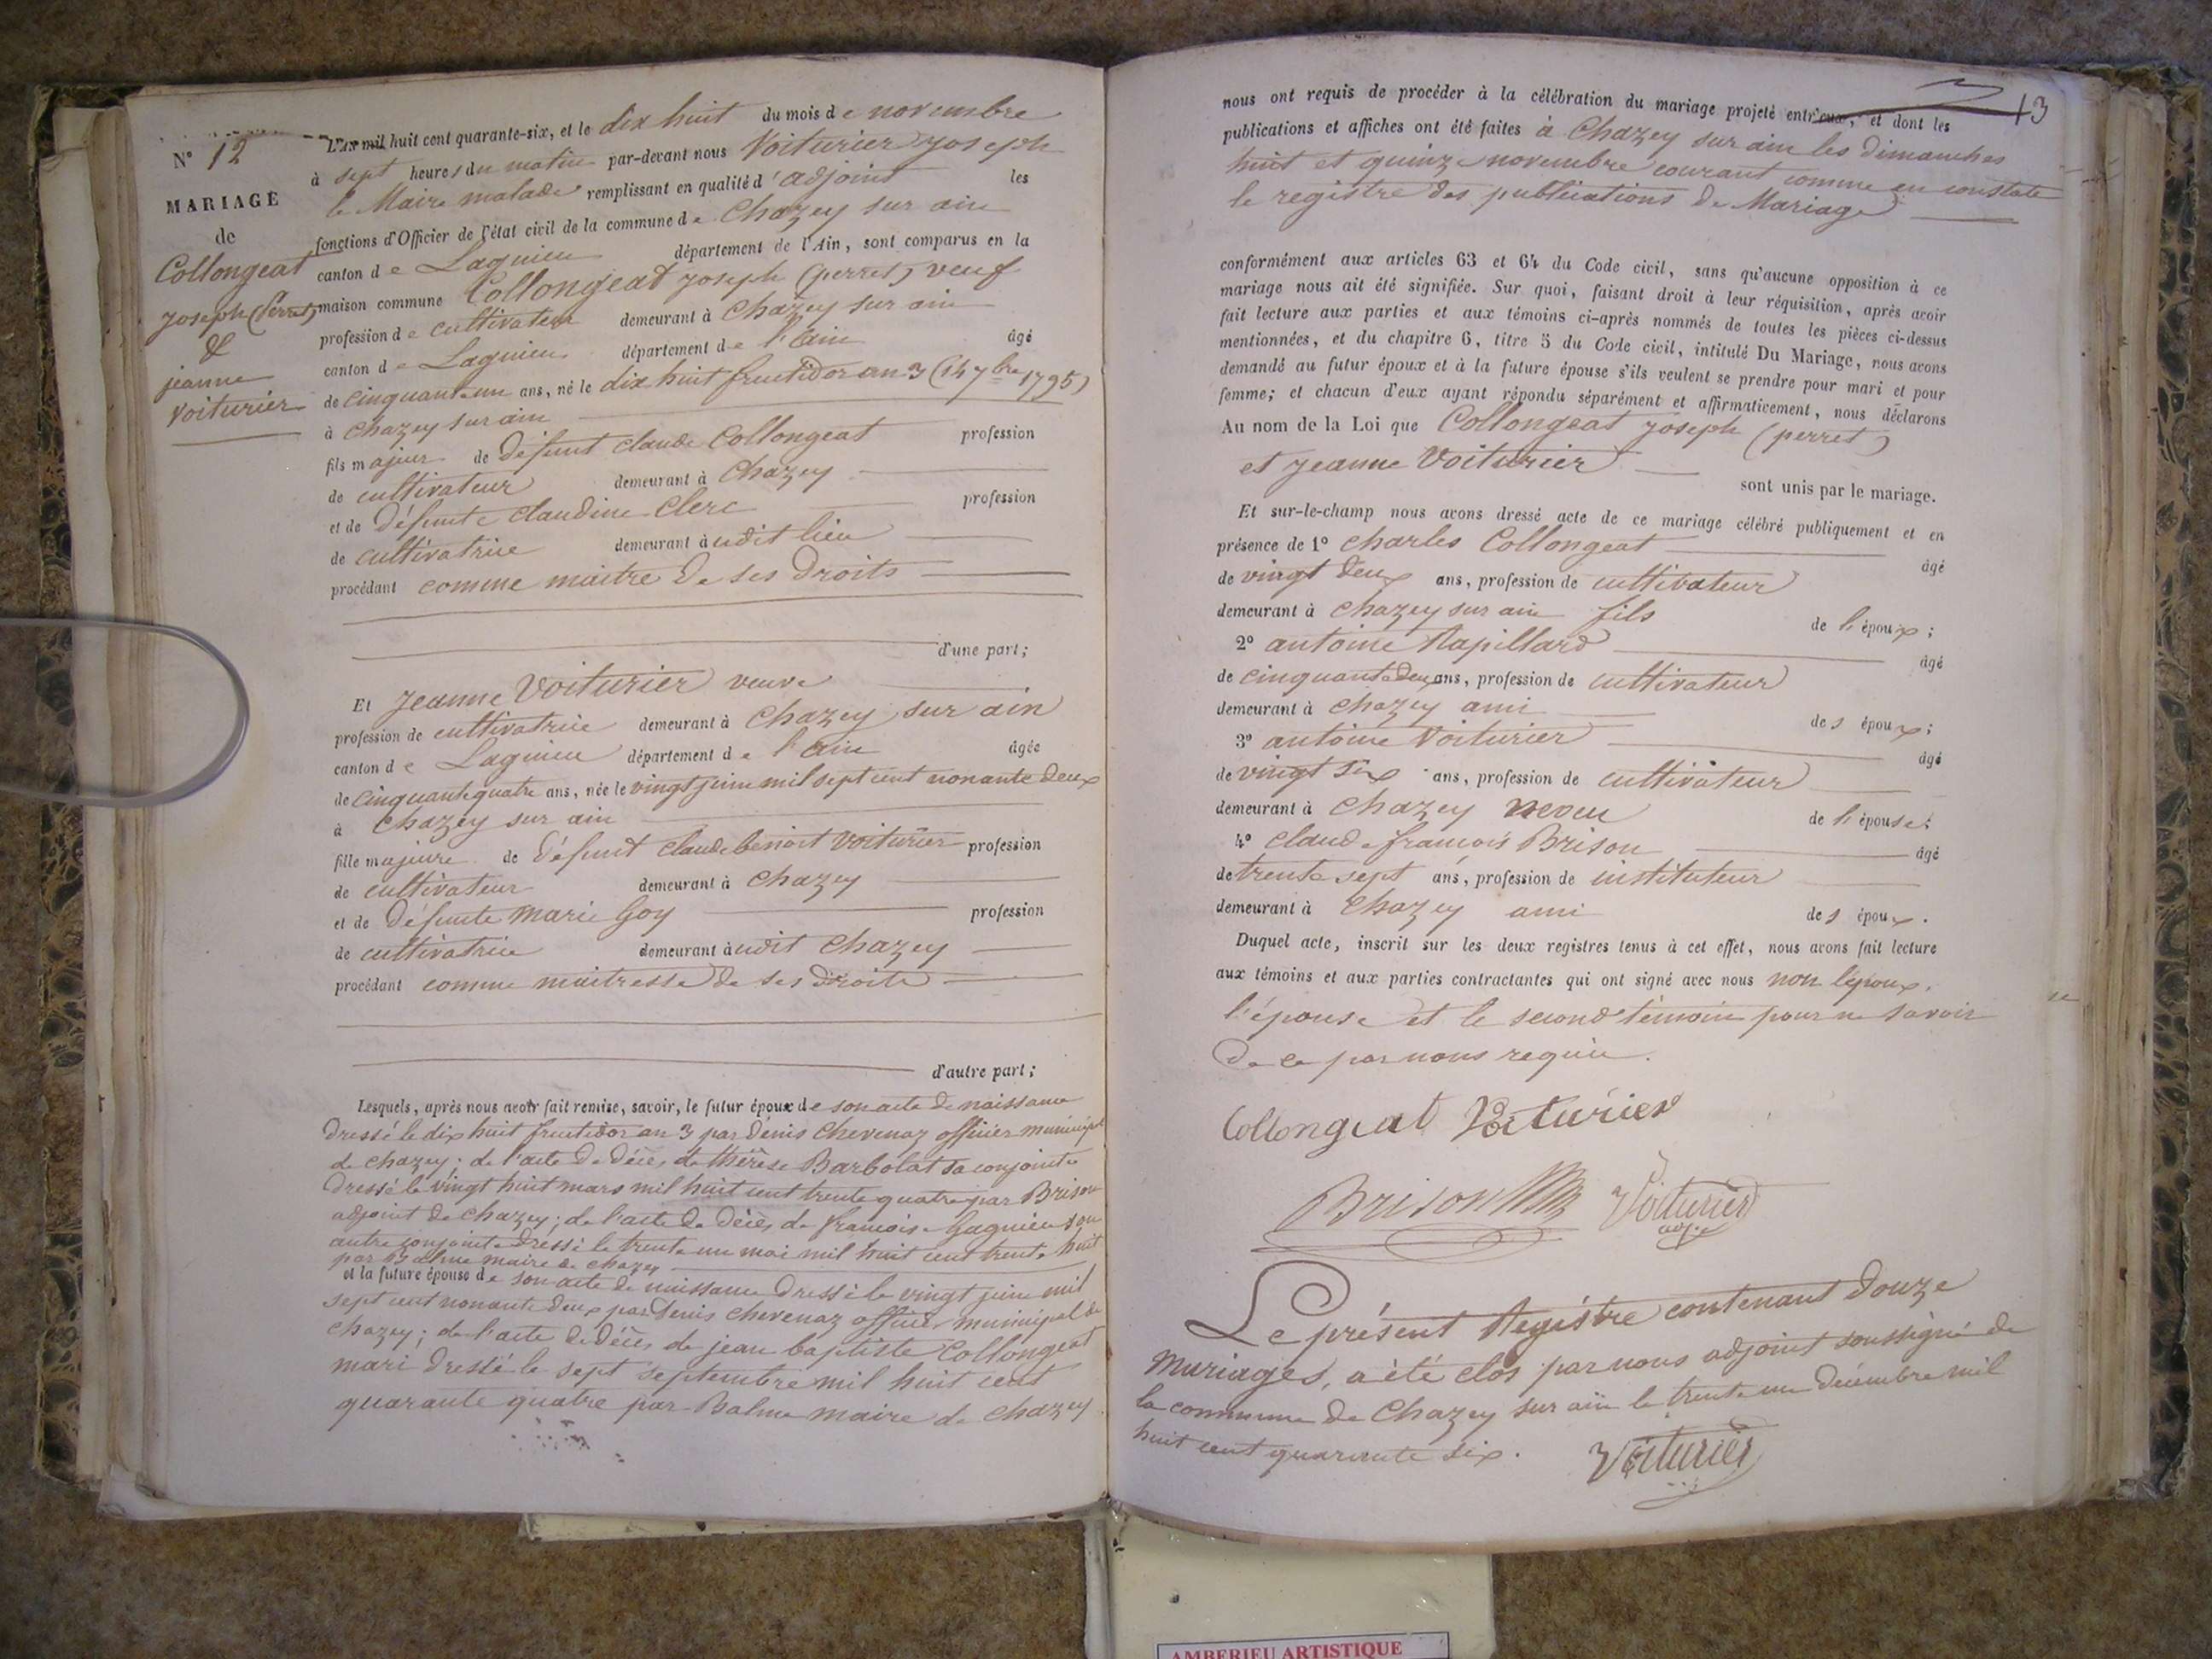 N° 12
MARIAGE
de
Collongeat
joseph (Perret)
&
jeanne
Voiturier
L'AN mil huit cent quarante-six, et le dix huit du mois de novembre
à sept heures du matin par-devant nous Voiturier joseph
le Maire malade remplissant en qualité d'adjoint les
fonctions d'Officier de l'état civil de la commune de Chazey sur ain
canton de Lagnieu département de l'Ain, sont comparus en la
maison commune Collongeat joseph (perret) veuf
profession de cultivateur demeurant à Chazey sur ain
canton de Lagnieu département de l'ain âgé
de cinquante un ans, né le dix huit fructidor an 3 (14 7bre 1795)
à Chazey sur ain
fils majeur de défunt claude Collongeat profession
de cultivateur demeurant à Chazey
et de défunte claudine Clerc profession
de cultivatrice demeurant à udit lieu
procédant comme maitre de ses droits
d'une part;
Et jeanne Voiturier veuve
profession de cultivatrice demeurant à Chazey sur ain
canton de Lagnieu département de l'ain âgée
de cinquante quatre ans, née le vingt juin mil sept cent nonante deux
à Chazey sur ain
fille majeure de défunt claude benoit Voiturier profession
de cultivateur demeurant à Chazey
et de défunte marie Goy profession
de cultivatrice demeurant à udit Chazey
procédant comme maitresse de ses droits
d'autre part;
Lesquels, après nous avoir fait remise, savoir, le futur époux de son acte de naissance
dressé le dix huit fructidor an 3 par denis Chevenaz officier municipal
de chazey; de l'acte de décès de thérèse Barbolat sa conjointe
dressé le vingt huit mars mil huit cent trente quatre par Brison
adjoint de chazey; de l'acte de décès de francoise Gagnieu son
autre conjointe dressé le trente un mai mil huit cent trente huit
par Balme maire de chazey
et la future épouse de son acte de naissance dressé le vingt juin mil
sept cent nonante deux par denis chevenaz officier municipal de
chazey; de l'acte de décès de jean baptiste Collongeat
mari dressé le sept septembre mil huit cent
quarante quatre par Balme maire de chazey
13
nous ont requis de procéder à la célébration du mariage projeté entr'eux, et dont les
publications et affiches ont été faites à Chazey sur ain les dimanches
huit et quinze novembre courant comme en constate
le registre des publications de Mariage
conformément aux articles 63 et 64 du Code civil, sans qu'aucune opposition à ce
mariage nous ait été signifiée. Sur quoi, faisant droit à leur réquisition, après avoir
fait lecture aux parties et aux témoins ci-après nommés de toutes les pièces ci-dessus
mentionnées, et du chapitre 6, titre 5 du Code civil, intitulé Du Mariage, nous avons
demandé au futur époux et à la future épouse s'ils veulent se prendre pour mari et pour
femme; et chacun d'eux ayant répondu séparément et affirmativement, nous déclarons
Au nom de la Loi que Collongeat joseph (perret)
et jeanne Voiturier
sont unis par le mariage.
Et sur-le-champ nous avons dressé acte de ce mariage célébré publiquement et en
présence de 1° charles Collongeat âgé
de vingt deux ans, profession de cultivateur
demeurant à chazey sur ain fils de l'époux;
2° antoine Rapillard âgé
de cinquante deux ans, profession de cultivateur
demeurant à chazey ami des époux;
3° antoine Voiturier âgé
de vingt six ans, profession de cultivateur
demeurant à chazey neveu de l'épouse;
4° claude francois Brison âgé
de trente sept ans, profession de instituteur
demeurant à Chazey ami des époux.
Duquel acte, inscrit sur les deux registres tenus à cet effet, nous avons fait lecture
aux témoins et aux parties contractantes qui ont signé avec nous non l'époux,
l'épouse et le second témoin pour ne savoir
de ce par nous requis.
Collongeat Voiturier
Brison Voiturier
adj.
Le présent Registre contenant douze
mariages, a été clos par nous adjoint soussigné de
la commune de Chazey sur ain le trente un décembre mil
huit cent quarante six. Voiturier
AMBERIEU ARTISTIQUE